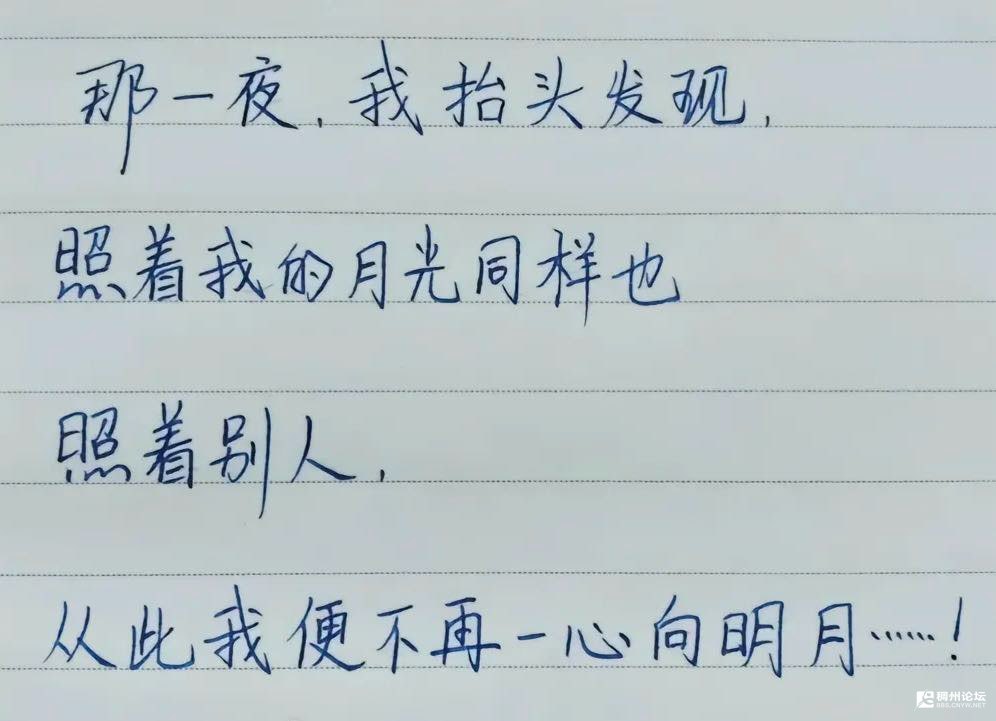 那一夜,我抬头发现,
照着我的月光同样也
照着别人,
从此我便不再一心向明月……!
稠州论坛
BBS.CNYW.NET